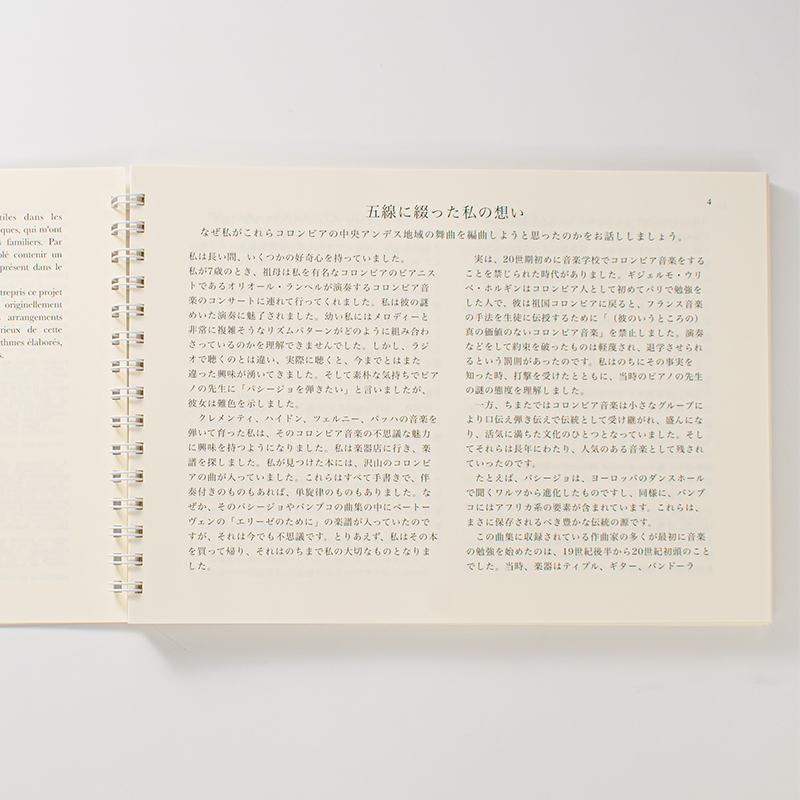 tiles dans les
ques, qui m'ont
s familiers. Par
blé contenir un
présent dans le
trepris ce projet
originellement
arrangements
rieux de cette
thmes élaborés,
s.
4
五線に綴った私の想い
なぜ私がこれらコロンビアの中央アンデス地域の舞曲を編曲しようと思ったのかをお話ししましょう。
私は長い間、いくつかの好奇心を持っていました。
私が7歳のとき、祖母は私を有名なコロンビアのピアニス
トであるオリオール・ランヘルが演奏するコロンビア音
楽のコンサートに連れて行ってくれました。私は彼の謎
めいた演奏に魅了されました。幼い私にはメロディーと
非常に複雑そうなリズムパターンがどのように組み合わ
さっているのかを理解できませんでした。しかし、ラジ
オで聴くのとは違い、実際に聴くと、今までとはまた
違った興味が湧いてきました。そして素朴な気持ちでピア
ノの先生に「パシージョを弾きたい」と言いましたが、
彼女は難色を示しました。
クレメンティ、ハイドン、ツェルニー、バッハの音楽を
弾いて育った私は、そのコロンビア音楽の不思議な魅力
に興味を持つようになりました。私は楽器店に行き、楽
譜を探しました。私が見つけた本には、沢山のコロンビ
アの曲が入っていました。これらはすべて手書きで、伴
奏付きのものもあれば、単旋律のものもありました。な
ぜか、そのパシージョやバンブコの曲集の中にベートー
ヴェンの「エリーゼのために」の楽譜が入っていたので
すが、それは今でも不思議です。とりあえず、私はその本
を買って帰り、それはのちまで私の大切なものとなりま
した。
実は、20世期初めに音楽学校でコロンビア音楽をする
ことを禁じられた時代がありました。ギジェルモ・ウリ
ベ・ホルギンはコロンビア人として初めてパリで勉強を
した人で、彼は祖国コロンビアに戻ると、フランス音楽
の手法を生徒に伝授するために「（彼のいうところの）
真の価値のないコロンビア音楽」を禁止しました。演奏
などをして約束を破ったものは軽度され、退学させられ
るという罰則があったのです。私はのちにその事実を
知った時、打撃を受けたとともに、当時のピアノの先生
の謎の態度を理解しました。
一方、ちまたではコロンビア音楽は小さなグループに
より口伝え弾き伝えで伝統として受け継がれ、盛んにな
り、活気に満ちた文化のひとつとなっていました。そし
てそれらは長年にわたり、人気のある音楽として残され
ていったのです。
たとえば、パシージョは、ヨーロッパのダンスホール
で聞くワルツから進化したものですし、同様に、バンブ
コにはアフリカ系の要素が含まれています。これらは、
まさに保存されるべき豊かな伝統の源です。
この曲集に収録されている作曲家の多くが最初に音楽
の勉強を始めたのは、19世紀後半から20世紀初頭のこと
でした。当時、楽器はティプル、ギター、バンドーラ